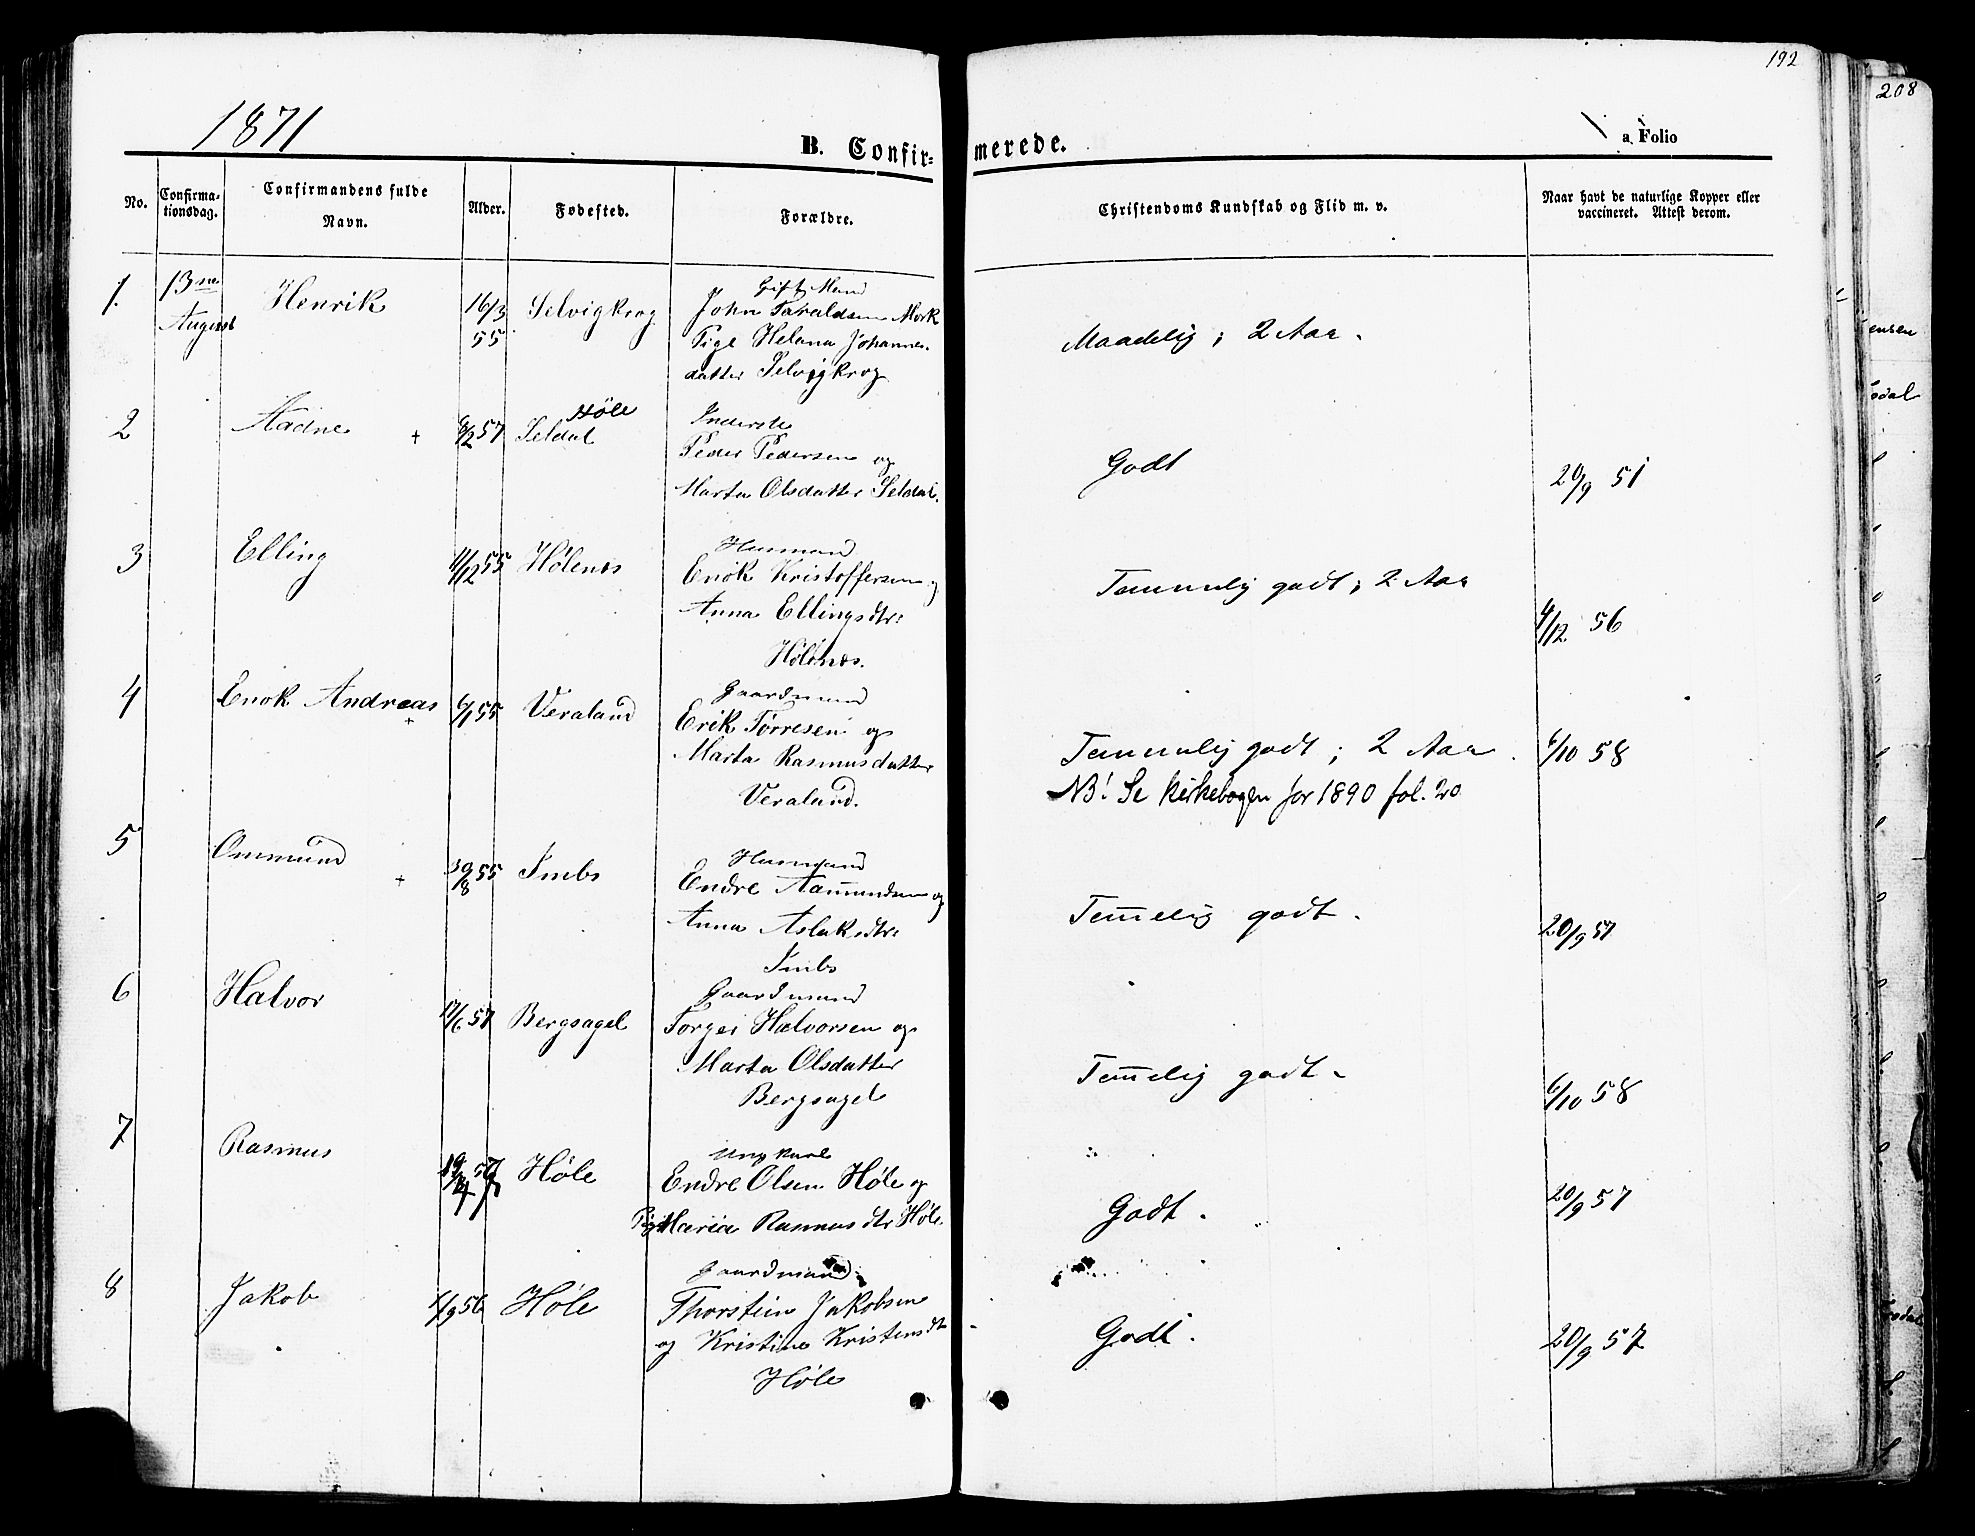 192
208
1871
B. Confir=
merede.
a. Folio
No.
Confirma-
tionsdag.
Confirmandens fulde
Navn.
Alder.
Fødested.
Forældre.
Christendoms Kundskab og Flid m. v.
Naar havt de naturlige Kopper eller
vaccineret. Attest derom.
1. 13ne August Henrik 16/3 55 Selvigkrog
Gift Mand
John Taraldsen Mork
Pige Helana Johannes-
datter Selvigkrog
Maadelig; 2 Aar.
2 Aadne + 6/2 57 Høle Seldal
Inderste
Peder Pedersen og
Marta Olsdatter Seldal.
Godt
20/9 51
3 Elling 11/12 55 Hølenes
Husmand
Enok Kristoffersen og
Anna Ellingsdtr:
Hølenes.
Temmelig godt; 2 Aar
4/12 56
4 Enok Andreas + 6/1 55 Veraland
Gaardmand
Erik Tørresen og
Marta Rasmusdatter
Veraland.
Temmelig godt; 2 Aar.
NB! Se kirkebogen for 1890 fol. 20
6/10 58
5 Ommund + 30/8 55 Imbs
Husmand
Endre Aamundsen og
Anna Aslaksdtr:
Imbs
Tem̅elig godt.
20/9 57
6 Halvor 17/6 57 Bergsagel
Gaardmand
Torger Halvorsen og
Marta Olsdatter
Bergsagel
Tem̅elig godt.
6/10 58
7 Rasmus 19/4 57 Høle
Ungkarl
Endre Olsen Høle og
Pige Maria Rasmusdtr Høle.
Godt.
20/9 57
8 Jakob 1/9 56 Høle
Gaardmand
Thorstein Jakobsen
og Kristine Kristensdt
Høle
Godt.
20/9 57